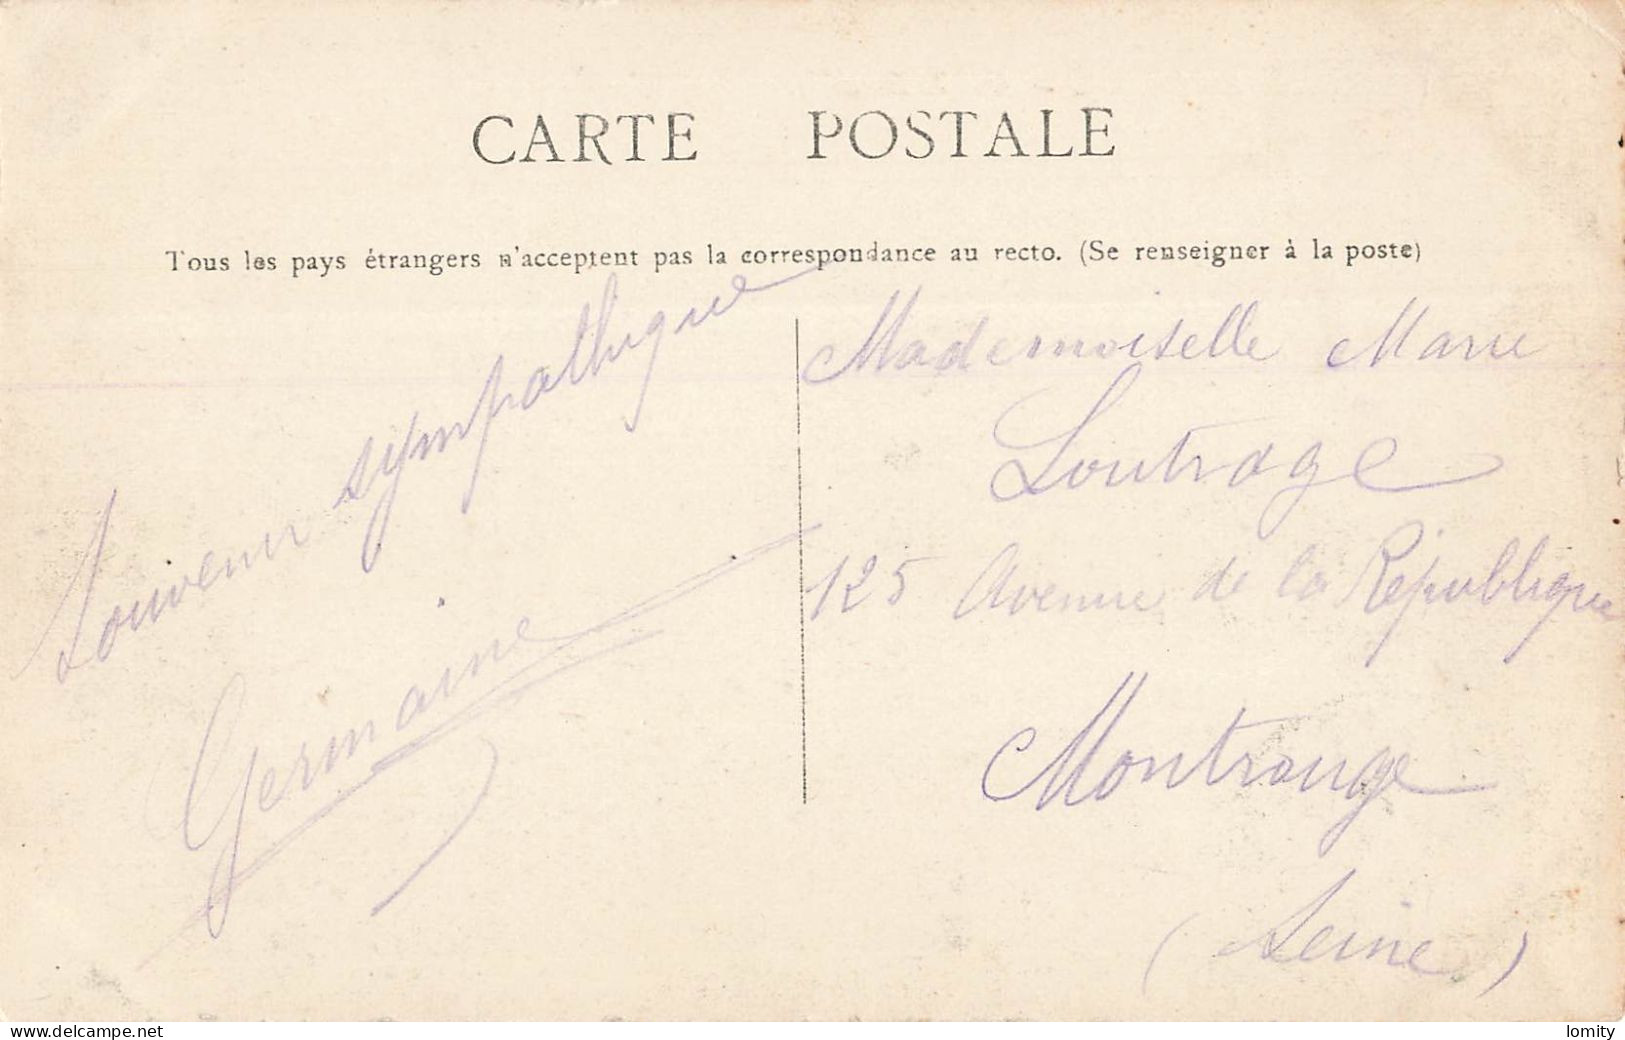 CARTE POSTALE
Tous les pays étrangers n'acceptent pas la correspondance au recto. (Se renseigner à la poste)
Souvenir sympathique
Germaine
Mademoiselle Marie
Loutrage
125 Avenue de la République
Montrouge
(Seine)
www.delcampe.net
lomity